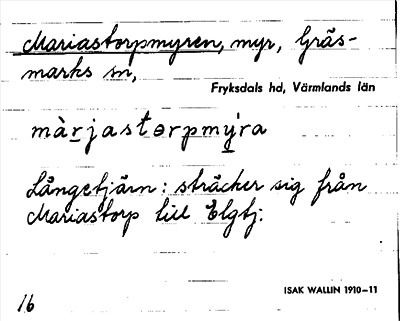 Mariastorpmyren, myr, Gräs-
marks sn,
Fryksdals hd, Värmlands län
màrjastɵrpmy̆ra
Långetjärn: sträcker sig från
Mariastorp till Elgtj.
ISAK WALLIN 1910–11
16